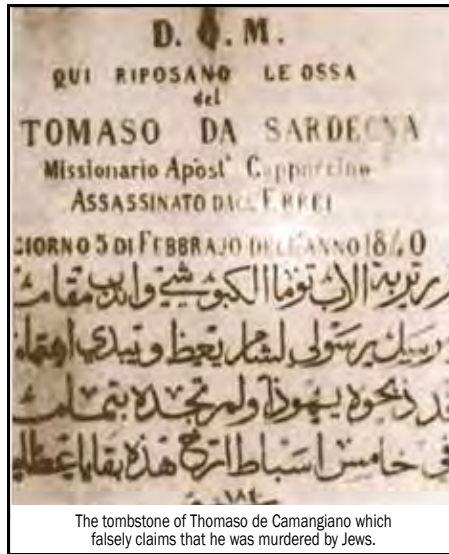 D. O. M.
QUI RIPOSANO LE OSSA
del
TOMASO DA SARDEGNA
Missionario Apost° Cappuccino
ASSASSINATO DAGL'EBREI
GIORNO 5 DI FEBBRAJO DELL'ANNO 1840
تربة الاب توما الكبوشي
يعظ ويبدي
يهوذا ولم تجده
في خامس اسباط ارخ هذه بقايا
The tombstone of Thomaso de Camangiano which
falsely claims that he was murdered by Jews.